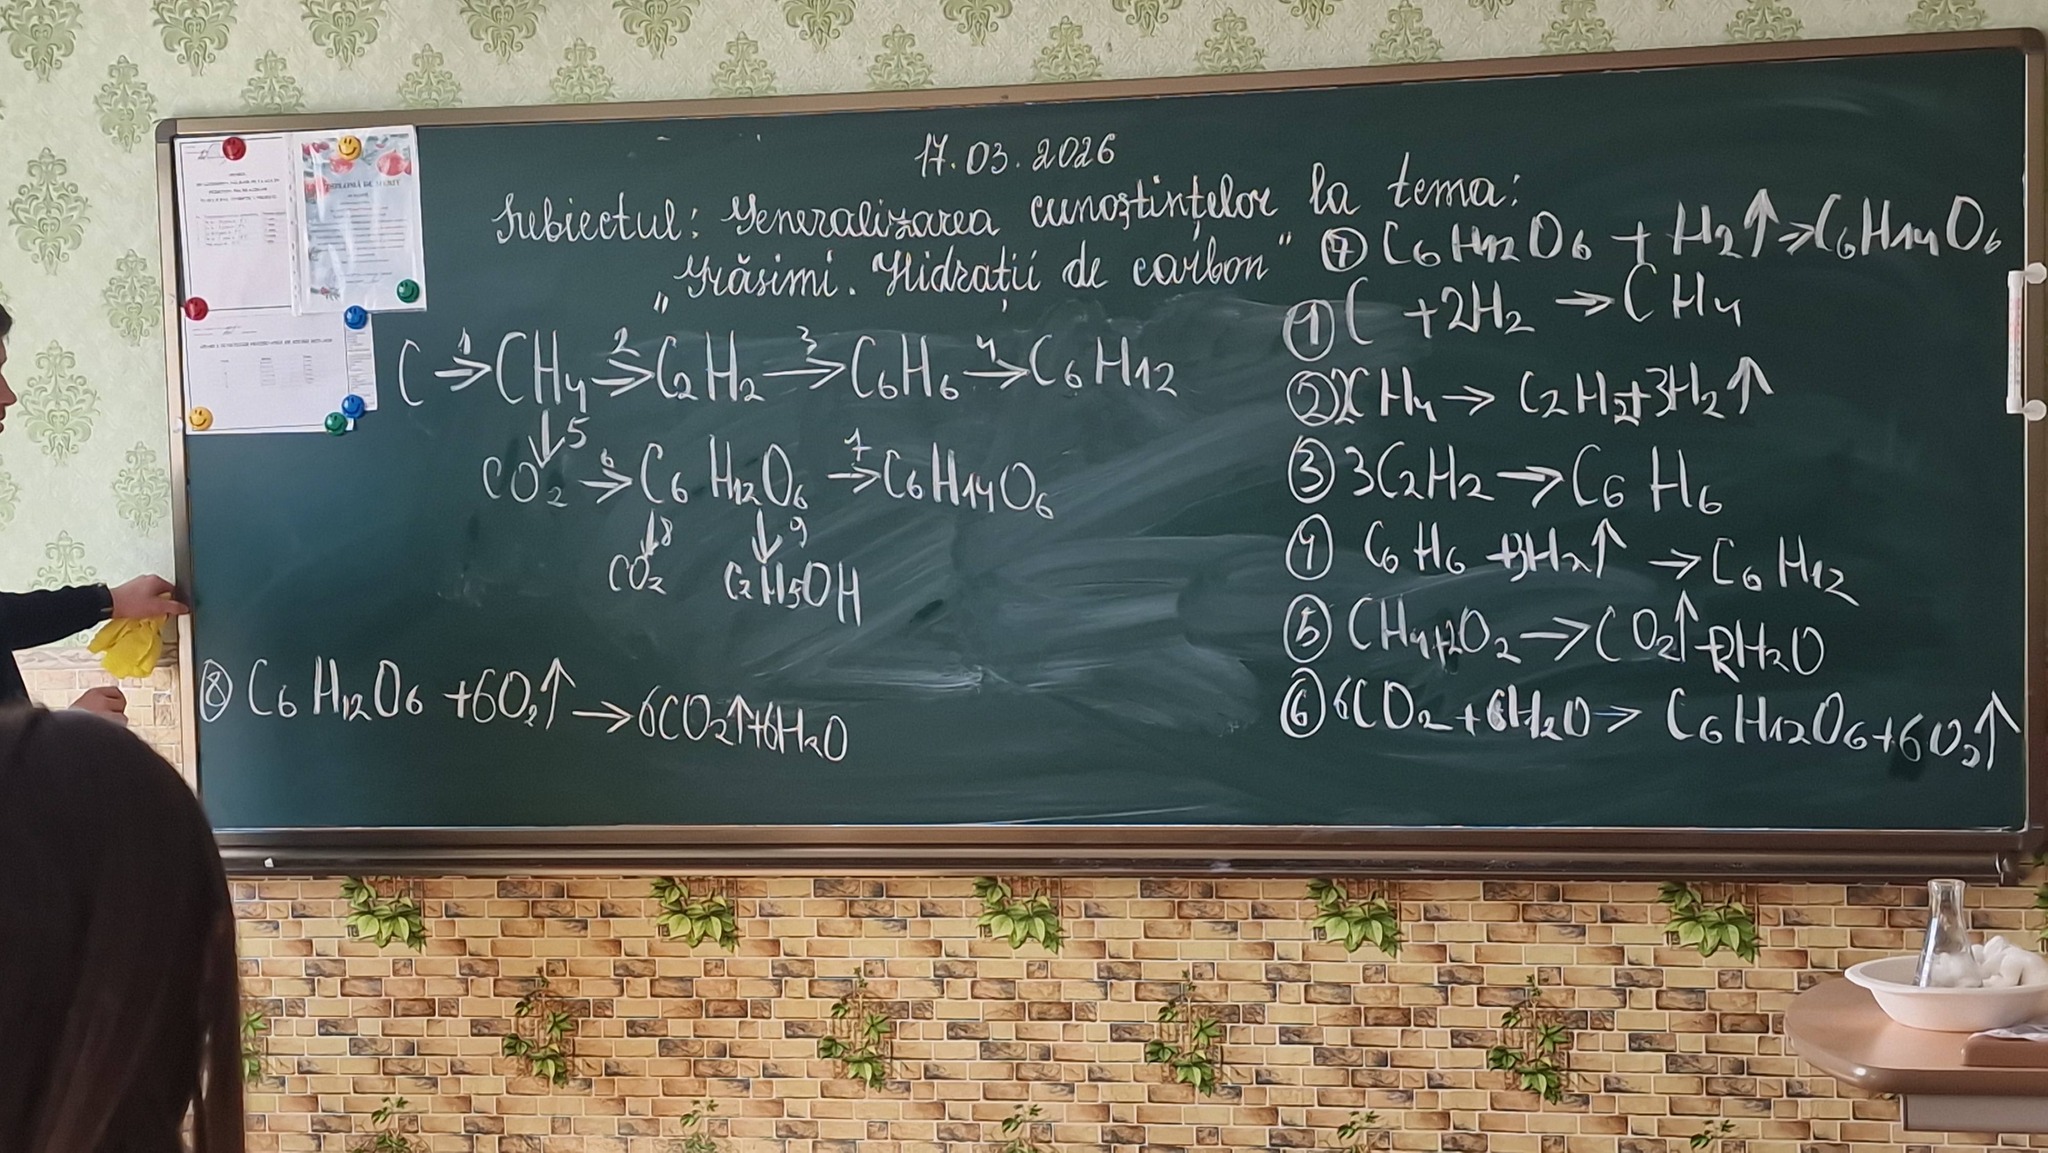 17.03.2026
Subiectul: Generalizarea cunoștințelor la tema:
„Grăsimi. Hidrații de carbon"
C →1 CH4 →2 C2H2 →3 C6H6 →4 C6H12
↓5
CO2 →6 C6H12O6 →7 C6H14O6
↓8 ↓9
CO2 C2H5OH
⑦ C6H12O6 + H2↑ → C6H14O6
① C + 2H2 → CH4
② 2CH4 → C2H2 + 3H2↑
③ 3C2H2 → C6H6
④ C6H6 + 3H2↑ → C6H12
⑤ CH4 + 2O2 → CO2↑ + 2H2O
⑥ 6CO2 + 6H2O → C6H12O6 + 6O2↑
⑧ C6H12O6 + 6O2↑ → 6CO2↑ + 6H2O
DIPLOMĂ DE MERIT